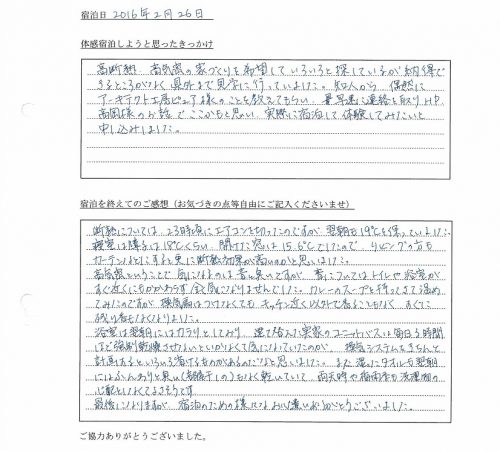 宿泊日 2016年2月26日
体感宿泊しようと思ったきっかけ
高断熱 高気密の家づくりを希望していろいろと探しているが納得で
きるところがなく 県外まで見学に行っていました。知人から 偶然に
アーキテクト工房ピュア様のことを教えてもらい、早速に連絡を取り HP、
高岡様のお話で ここかもと思い、実際に宿泊して体験してみたいと
申し込みました。
宿泊を終えてのご感想（お気づきの点等自由にご記入くださいませ）
断熱については 23時頃にエアコンを切ったのですが 翌朝も19℃を保っていました。
寝室は障子は18℃くらい、開けた窓は15.6℃でしたので リビングの方も
カーテンなどにすると更に断熱効果が高いのかと思いました。
高気密ということで 気になるのは音と臭いですが、音についてはトイレや浴室が
すぐ近くにもかかわらず 全く気になりませんでした。カレーのスープを持ってきて温め
てみたのですが 換気扇はつけなくても キッチン近く以外で香ることもなく、すぐに
残り香もなくなりました。
浴室は翌朝にはカラリとしており、 実家のユニットバスは毎日3時間
ほど強制乾燥させないといかなくて気になっていたのが、 換気システムをきちんと
計画するといろいろ省けるものがあるのだなと思いました。また 濡れたタオルも翌朝
にはふんわりと臭い(部屋干しの)もなく乾いていて、雨天時や梅雨時も洗濯物の
心配をしなくてよさそうです。
最後になりますが、宿泊のための様々なお心遣いありがとうございました。
ご協力ありがとうございました。